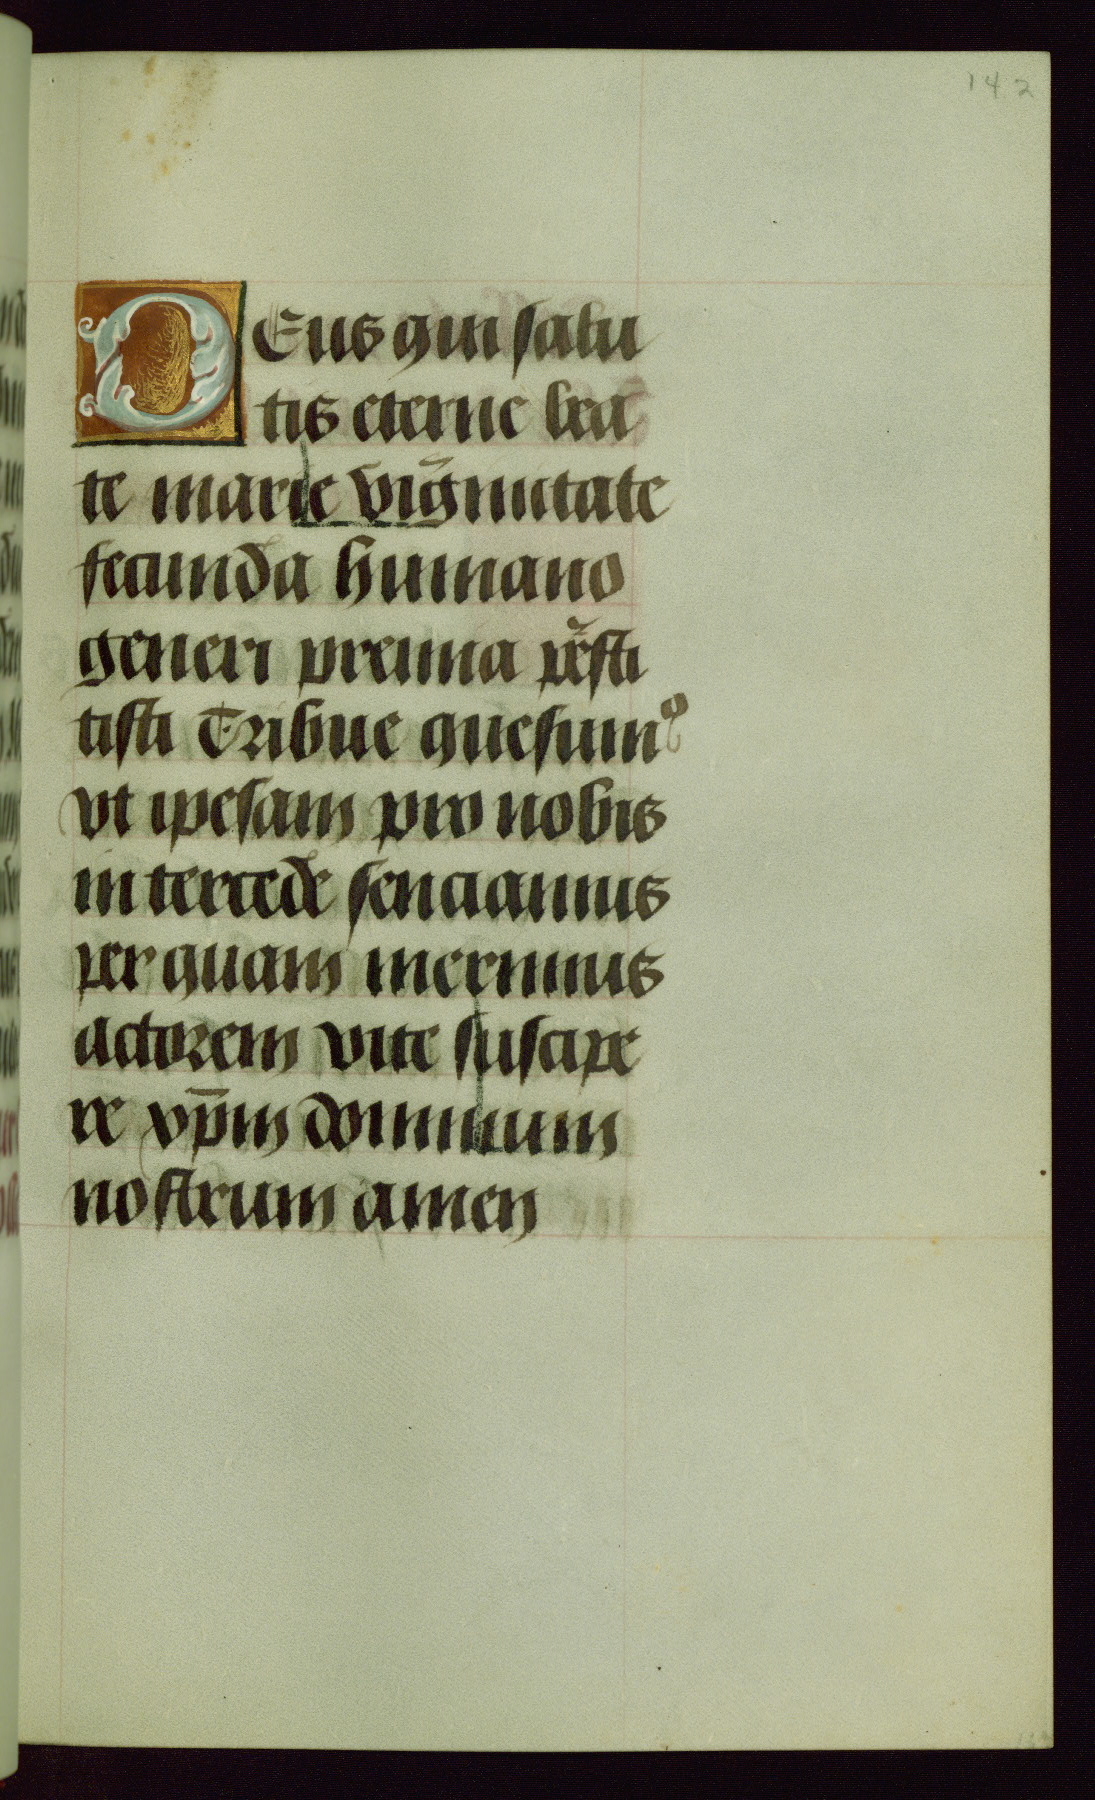 142
DEus qui salu
tis eterne bea
te marie virg̃initate
fecunda humano
generi premia p̃resti
tisti Tribue quesumꝰ
vt ipesam pro nobis
in tercede senciamus
per quam meruimus
actorem vite suscipe
re xp̄m dominum
nostrum amen